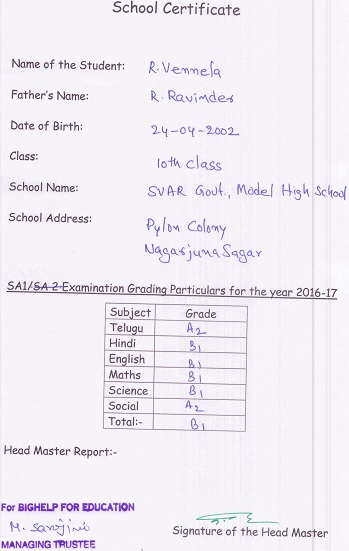 School Certificate
Name of the Student: R. Vennela
Father's Name: R. Ravinder
Date of Birth: 24-04-2002
Class: 10th class
School Name: SVAR Govt., Model High School
School Address: Pylon Colony
Nagarjuna Sagar
SA1/SA 2 Examination Grading Particulars for the year 2016-17
Subject Grade
Telugu A2
Hindi B1
English B1
Maths B1
Science B1
Social A2
Total:- B1
Head Master Report:-
For BIGHELP FOR EDUCATION
M. Sarojini
MANAGING TRUSTEE
Signature of the Head Master